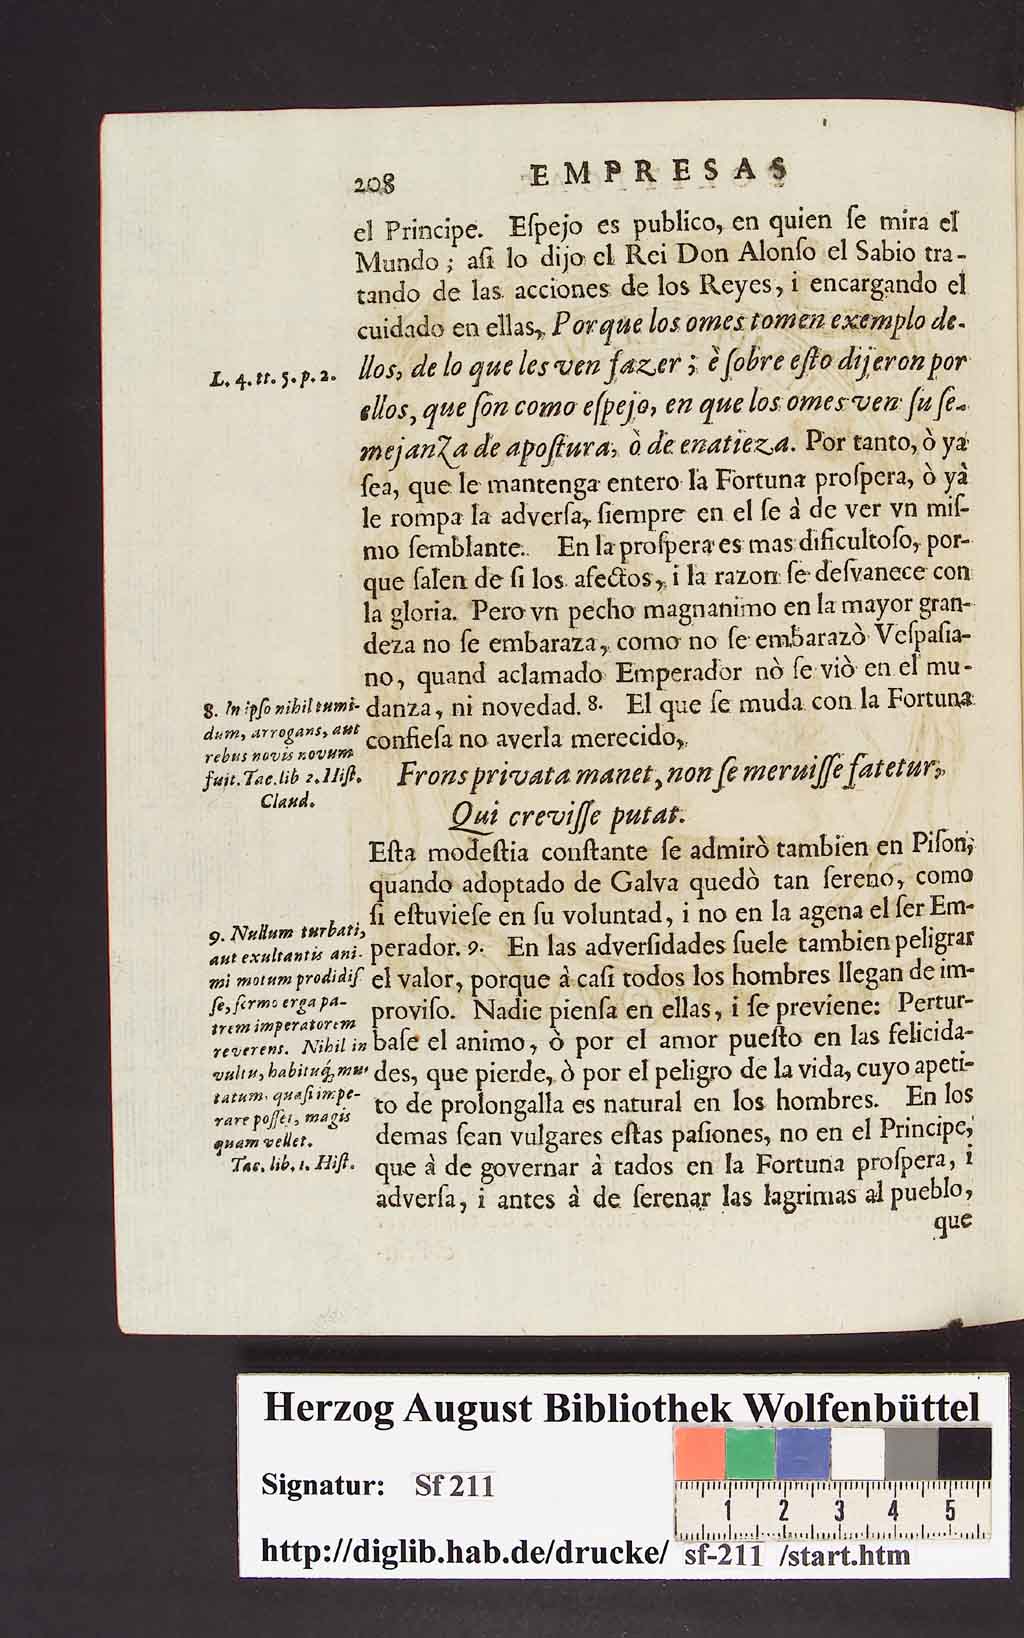 208
EMPRESAS
el Principe. Eſpejo es publico, en quien ſe mira el
Mundo; aſi lo dijo el Rei Don Alonſo el Sabio tra-
tando de las acciones de los Reyes, i encargando el
cuidado en ellas, Porque los omes tomen exemplo de-
llos, de lo que les ven fazer; è ſobre eſto dijeron por
ellos, que ſon como eſpejo, en que los omes ven ſu ſe-
mejanza de apoſtura, ò de enatieza. Por tanto, ò ya
ſea, que le mantenga entero la Fortuna proſpera, ò yà
le rompa la adverſa, ſiempre en el ſe à de ver vn miſ-
mo ſemblante. En la proſpera es mas dificultoſo, por-
que ſalen de ſi los afectos, i la razon ſe deſvanece con
la gloria. Pero vn pecho magnanimo en la mayor gran-
deza no ſe embaraza, como no ſe embarazò Veſpaſia-
no, quand aclamado Emperador nò ſe viò en el mu-
danza, ni novedad. 8. El que ſe muda con la Fortuna
confieſa no averla merecido,
Frons privata manet, non ſe meruiſſe fatetur,
Qui creviſſe putat.
Eſta modeſtia conſtante ſe admirò tambien en Piſon,
quando adoptado de Galva quedò tan ſereno, como
ſi eſtuvieſe en ſu voluntad, i no en la agena el ſer Em-
perador. 9. En las adverſidades ſuele tambien peligrar
el valor, porque à caſi todos los hombres llegan de im-
proviſo. Nadie pienſa en ellas, i ſe previene: Pertur-
baſe el animo, ò por el amor pueſto en las felicida-
des, que pierde, ò por el peligro de la vida, cuyo apeti-
to de prolongalla es natural en los hombres. En los
demas ſean vulgares eſtas paſiones, no en el Principe,
que à de governar à tados en la Fortuna proſpera, i
adverſa, i antes à de ſerenar las lagrimas al pueblo,
que
L. 4. tt. 5. p. 2.
8. In ipſo nihil tumi-
dum, arrogans, aut
rebus novis novum
fuit. Tac. lib 2. Hiſt.
Claud.
9. Nullum turbati,
aut exultantis ani-
mi motum prodidiſ
ſe, ſermo erga pa-
trem imperatorem
reverens. Nihil in
vultu, habituq́, mu-
tatum, quaſi impe-
rare poſſet, magis
quam vellet.
Tac. lib. 1. Hiſt.
Herzog August Bibliothek Wolfenbüttel
Signatur: Sf 211
1 2 3 4 5
http://diglib.hab.de/drucke/ sf-211 /start.htm